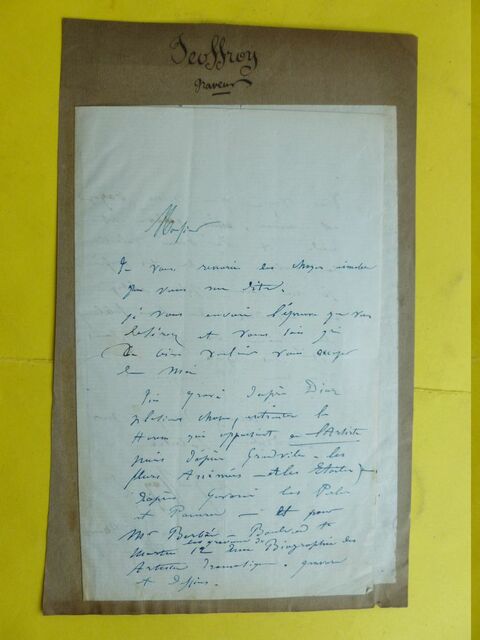 Geoffroy
graveur
Monsieur
Je vous remercie des choses aimables
que vous me dites.
je vous envoie l'épreuve que vous
désirez et vous sais gré
de bien vouloir vous occuper
de moi
J'ai gravé d'après Diaz
plusieurs choses, entr'autres le
Harem qui appartient à l'Artiste
puis d'après Grandville - les
fleurs Animées - et les Etoiles
d'après Gavarni les Perles
et Parures - Et pour
Mr Barba - Boulevard St
Martin 12 les gravures de Une Biographie des
Artistes Dramatiques. gravure
et dessins.